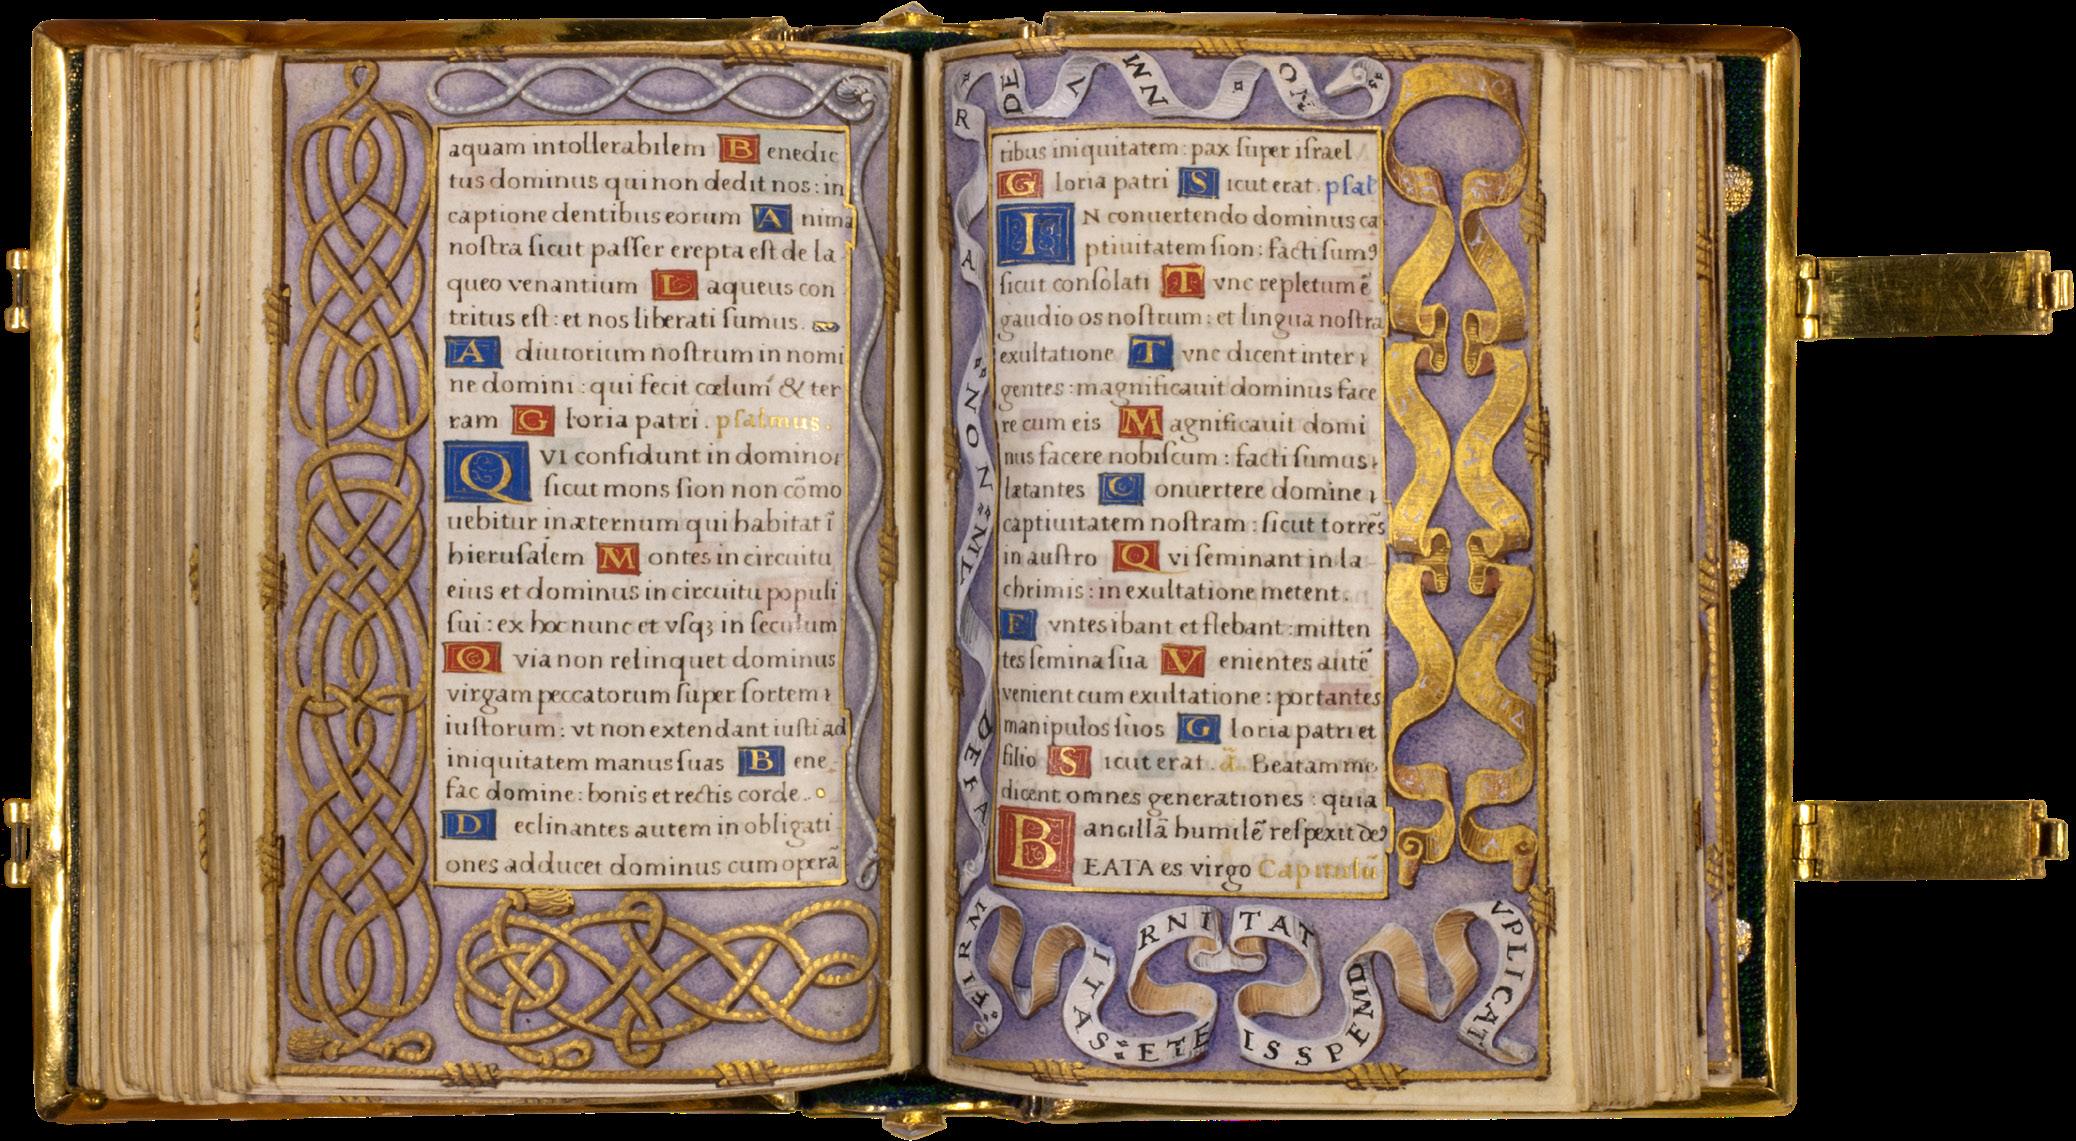 aquam intollerabilem B enedic
tus dominus qui non dedit nos : in
captione dentibus eorum A nima
nostra sicut passer erepta est de la
queo venantium L aqueus con
tritus est : et nos liberati sumus.
A diutorium nostrum in nomi
ne domini : qui fecit cœlum & ter
ram G loria patri . psalmus.
Q VI confidunt in domino
sicut mons sion non cõmo
uebitur in æternum qui habitat ĩ
hierusalem M ontes in circuitu
eius et dominus in circuitu populi
sui : ex hoc nunc et vsqꝫ in seculum
Q via non relinquet dominus
virgam peccatorum super sortem
iustorum : vt non extendant iusti ad
iniquitatem manus suas B ene
fac domine : bonis et rectis corde .
D eclinantes autem in obligati
ones adducet dominus cum operã
tibus iniquitatem : pax super israel
G loria patri S icut erat . psal
I N conuertendo dominus ca
ptiuitatem sion : facti sumꝯ
sicut consolati T vnc repletum ẽ
gaudio os nostrum : et lingua nostra
exultatione T vnc dicent inter
gentes : magnificauit dominus face
re cum eis M agnificauit domi
nus facere nobiscum : facti sumus
lætantes C onuertere domine
captiuitatem nostram : sicut torrẽs
in austro Q vi seminant in la
chrimis : in exultatione metent .
E vntes ibant et flebant : mitten
tes semina sua V enientes autẽ
venient cum exultatione : portantes
manipulos suos G loria patri et
filio S icut erat . ã. Beatam me
dicent omnes generationes : quia
ancillã humilẽ respexit deꝯ
B EATA es virgo Capitulũ
NON
MNV
DE
R
A
NON MA
DEFA
FIRM
ITAS ETE
RNITAT
IS SPEM D
VPLICAT